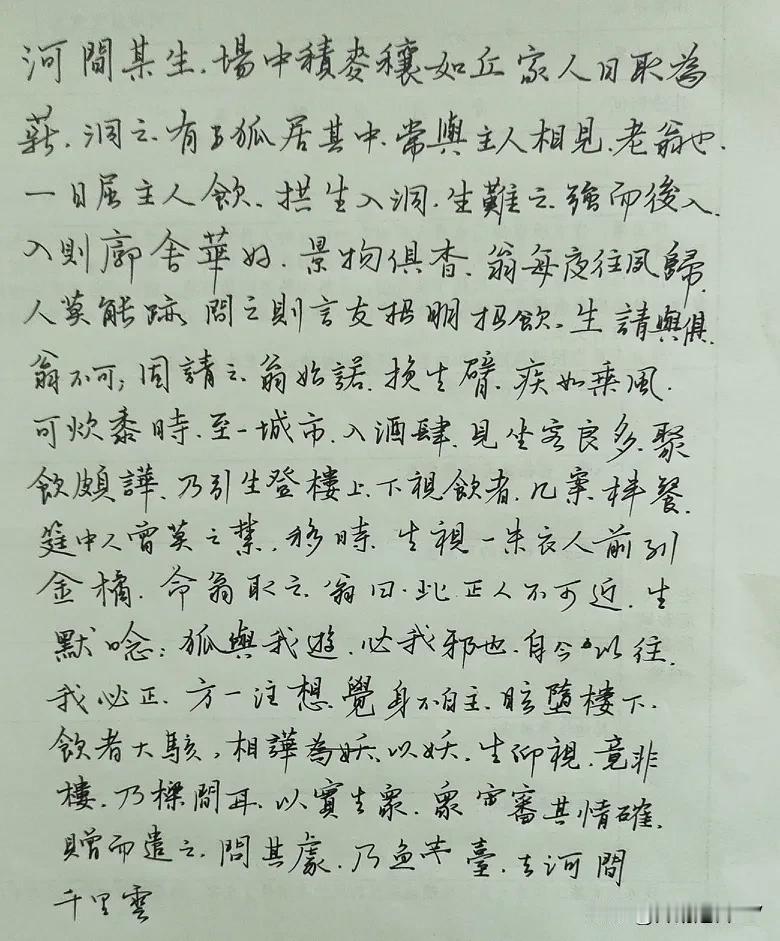 河間某生.場中積麥穰如丘家人日取為
薪.洞之.有狐居其中.常與主人相見.老翁也.
一日屈主人飲.拱生入洞.生難之.強而後入.
入則廓舍華好.景物俱香.翁每夜往夙歸.
人莫能跡.問之則言友招明招飲.生請與俱.
翁不可;固請之.翁始諾.挽生臂.疾如乘風.
可炊黍時.至一城市.入酒肆.見坐客良多.聚
飲頗譁.乃引生登樓上.下視飲者.几案柈餐.
筵中人曾莫之禁.移時.生視一朱衣人前列
金橘.命翁取之.翁曰.此正人不可近.生
默唸:狐與我遊.必我邪也.自今以往.
我必正.方一注想.覺身不自主.眩墮樓下.
飲者大駭,相譁為妖.以妖.生仰視.竟非
樓.乃樑間耳.以實告眾.眾審其情確.
贈而遣之.問其處.乃魚臺.去河間
千里雲